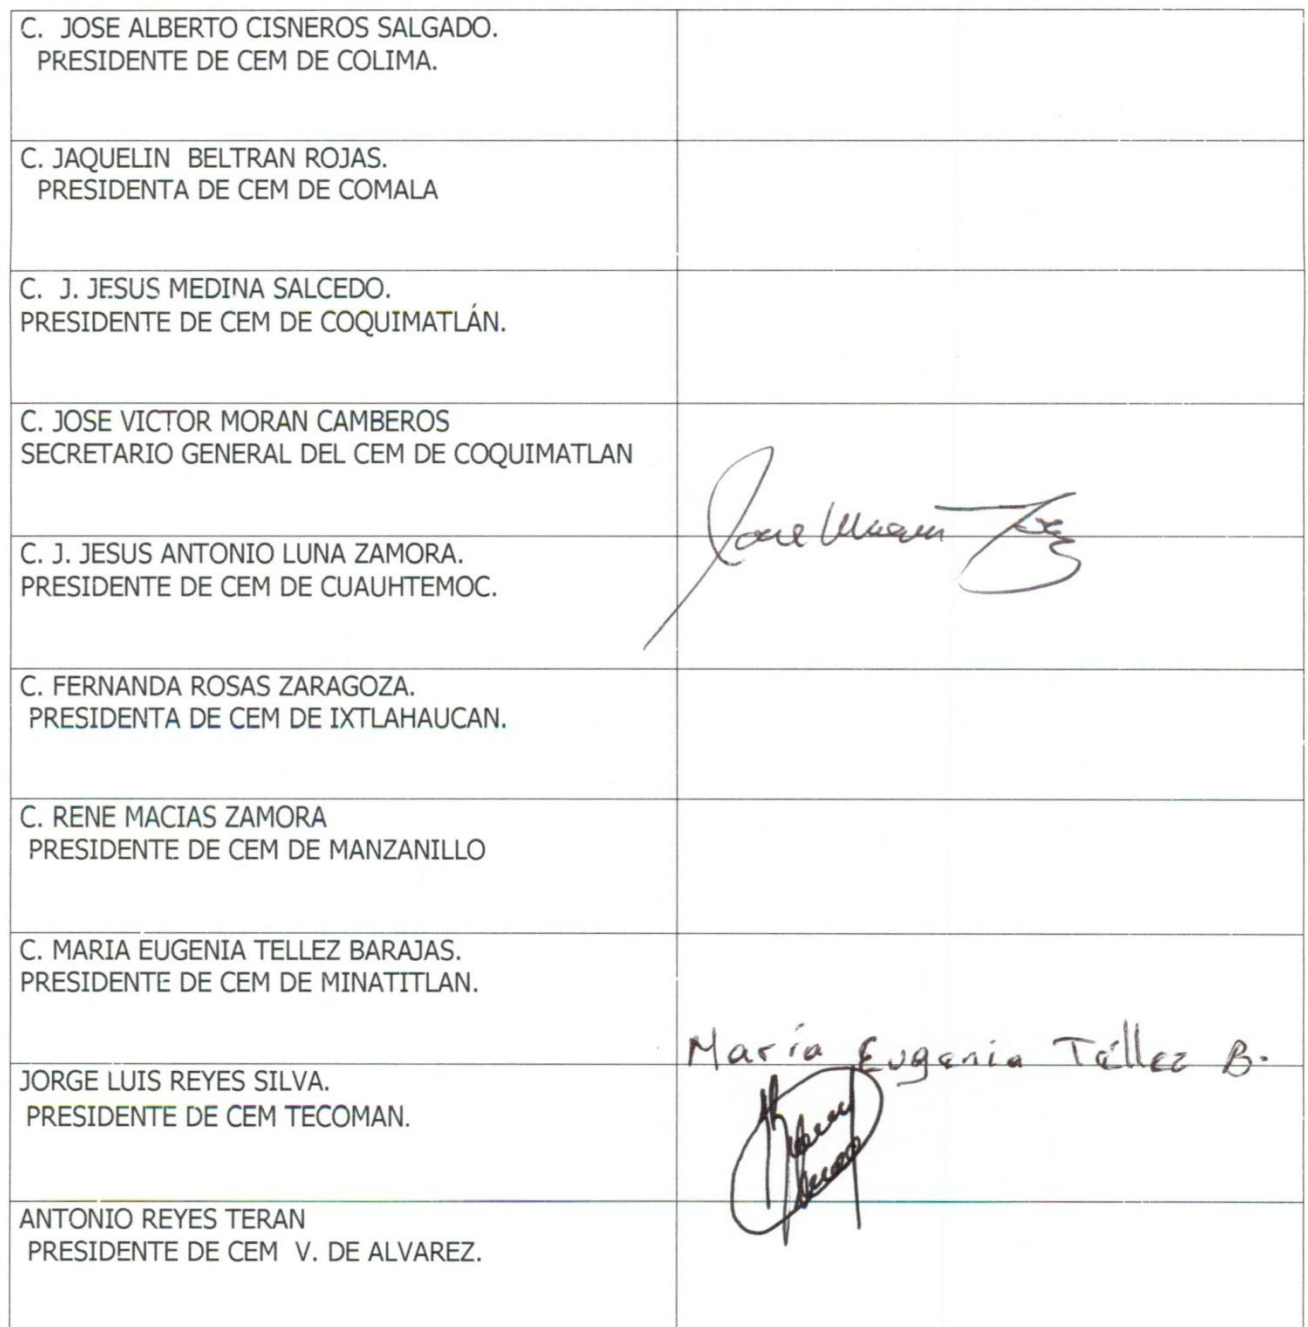 C. JOSE ALBERTO CISNEROS SALGADO.
PRESIDENTE DE CEM DE COLIMA.
C. JAQUELIN BELTRAN ROJAS.
PRESIDENTA DE CEM DE COMALA
C. J. JESUS MEDINA SALCEDO.
PRESIDENTE DE CEM DE COQUIMATLÁN.
C. JOSE VICTOR MORAN CAMBEROS
SECRETARIO GENERAL DEL CEM DE COQUIMATLAN
C. J. JESUS ANTONIO LUNA ZAMORA.
PRESIDENTE DE CEM DE CUAUHTEMOC.
C. FERNANDA ROSAS ZARAGOZA.
PRESIDENTA DE CEM DE IXTLAHAUCAN.
C. RENE MACIAS ZAMORA
PRESIDENTE DE CEM DE MANZANILLO
C. MARIA EUGENIA TELLEZ BARAJAS.
PRESIDENTE DE CEM DE MINATITLAN.
María Eugenia Téllez B.
JORGE LUIS REYES SILVA.
PRESIDENTE DE CEM TECOMAN.
ANTONIO REYES TERAN
PRESIDENTE DE CEM V. DE ALVAREZ.